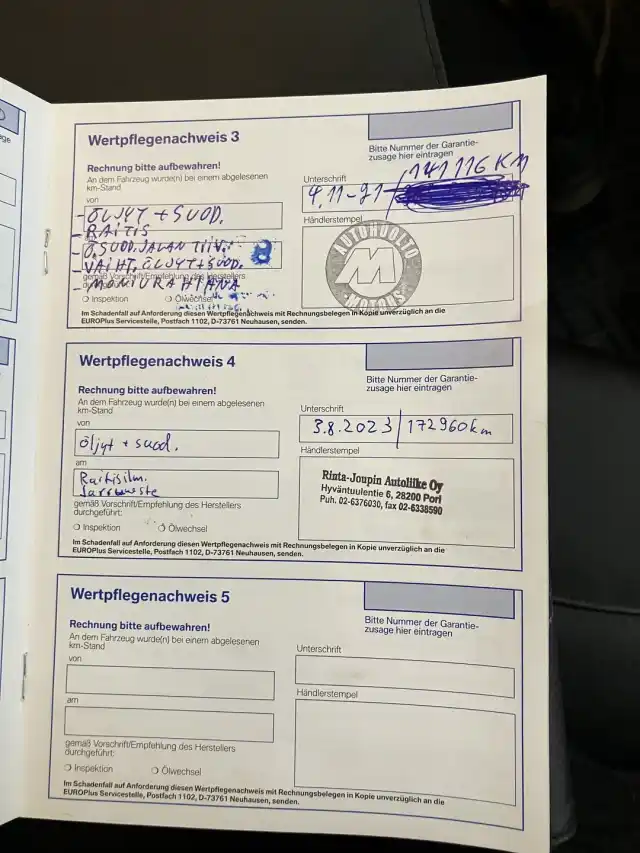 age
Wertpflegenachweis 3
Rechnung bitte aufbewahren!
An dem Fahrzeug wurde(n) bei einem abgelesenen
km-Stand
von
- ÖLJYT + SUOD.
- RAITIS
- Ö.SUOD. JALAN TIIV.
- VAIHT. ÖLJYT + SUOD.
gemäß Vorschrift/Empfehlung des Herstellers
- MONIURAHIHNA
Inspektion
Ölwechsel
Bitte Nummer der Garantie-
zusage hier eintragen
141116 KM
Unterschrift
4.11-21
Händlerstempel
AUTOHUOLTO
M
Im Schadenfall auf Anforderung diesen Wertpflegenachweis mit Rechnungsbelegen in Kopie unverzüglich an die
EUROPlus Servicestelle, Postfach 1102, D-73761 Neuhausen, senden.
Wertpflegenachweis 4
Rechnung bitte aufbewahren!
An dem Fahrzeug wurde(n) bei einem abgelesenen
km-Stand
von
öljyt + suod.
am
Raitisilm.
gemäß Vorschrift/Empfehlung des Herstellers
durchgeführt:
Inspektion
Ölwechsel
Bitte Nummer der Garantie-
zusage hier eintragen
Unterschrift
3.8.2023 / 172960km
Händlerstempel
Rinta-Joupin Autoliike Oy
Hyväntuulentie 6, 28200 Pori
Puh. 02-6376030, fax 02-6338590
Im Schadenfall auf Anforderung diesen Wertpflegenachweis mit Rechnungsbelegen in Kopie unverzüglich an die
EUROPlus Servicestelle, Postfach 1102, D-73761 Neuhausen, senden.
Wertpflegenachweis 5
Rechnung bitte aufbewahren!
An dem Fahrzeug wurde(n) bei einem abgelesenen
km-Stand
von
am
gemäß Vorschrift/Empfehlung des Herstellers
durchgeführt:
Inspektion
Ölwechsel
Bitte Nummer der Garantie-
zusage hier eintragen
Unterschrift
Händlerstempel
Im Schadenfall auf Anforderung diesen Wertpflegenachweis mit Rechnungsbelegen in Kopie unverzüglich an die
EUROPlus Servicestelle, Postfach 1102, D-73761 Neuhausen, senden.